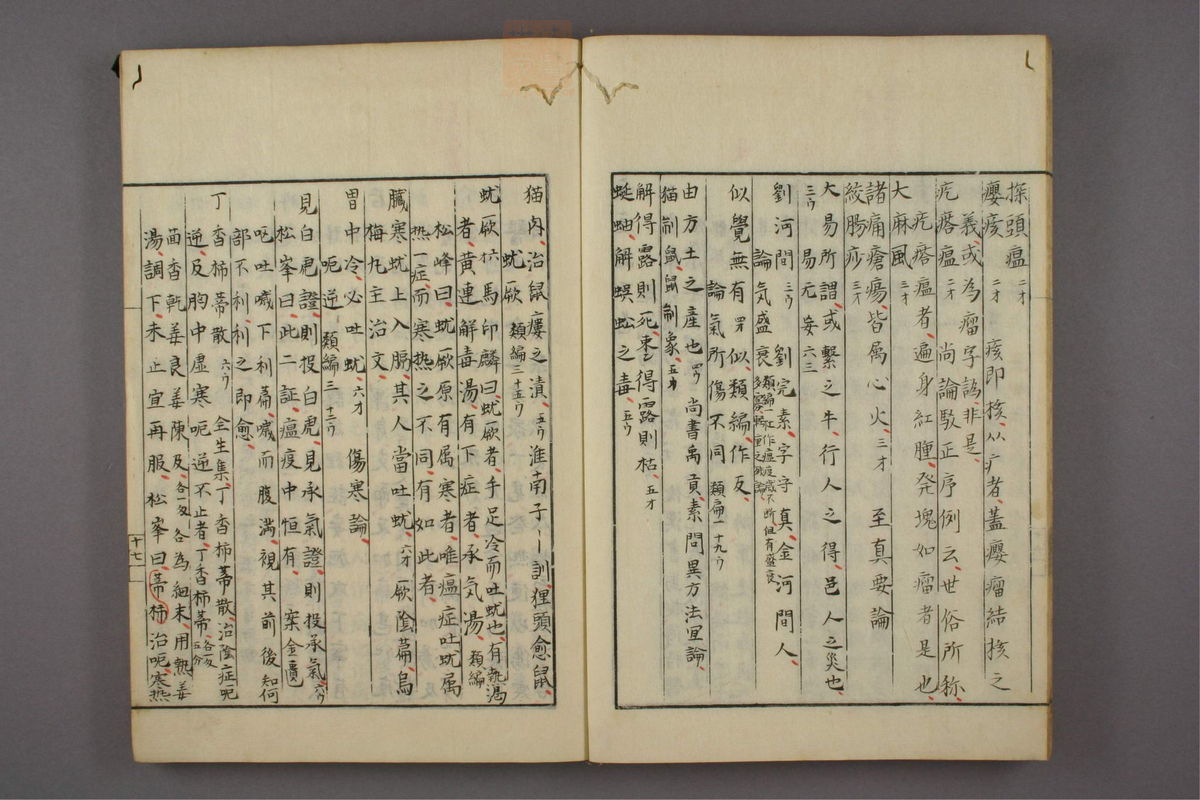 探頭瘟 二才
瘿痎 二才 痎即核、从疒者、蓋瘿瘤結核之
義、或為瘤字訛非是、
疙瘩瘟 二才 尚論駁正序例云、世俗所称
疙瘩瘟者、遍身紅腫発塊如瘤者是也、
大麻風 三才
諸痛瘡瘍、皆属心火、三才 至真要論
絞腸痧 三才
大易所謂、或繫之牛、行人之得、邑人之災也、
三ウ 易无妄六三
劉河間 三ウ 劉完素字守真、金河間人、
論気盛衰
似覺無有 四才 似、類編、作反、
論氣所傷不同 類編一十九ウ
由方土之產也 四ウ 尚書禹貢、素問異方法宜論、
猫制鼠、鼠制象、五才
解得露則死、棗得露則枯、五才
蜒蚰解蜈蚣之毒、五ウ
猫肉、治鼠瘻之潰、五ウ 淮南子〡訓、狸頭愈鼠、
蚘厥 類編三十五ウ
蚘厥六 馬印麟曰、蚘厥者手足冷而吐蚘也、有熱渴
者、黄連解毒湯、有下症者、承気湯、類編
松峰曰、蚘厥原有属寒者、唯瘟症吐蚘属
熱、一症而寒熱之不同、有如此者、
臓寒蚘上入膈、其人當吐蚘、六才 厥陰篇、烏
梅丸主治文、
胃中冷、必吐蚘、六才 傷寒論、
呃逆 類編三十二ウ
見白虎證、則投白虎、見承氣證、則投承氣、六ウ
松峯曰、此二証瘟疫中恒有、案金匱
呕吐噦下利篇、噦而腹満、視其前後、知何
部不利、利之即愈、
丁香柿蒂散 六ウ 全生集丁香柿蒂散、治陰症呃
逆、及胸中虚寒、呃逆不止者、丁香柿蒂各一匁五分
茴香乾姜良姜陳皮各一匁 各為細末、用熱姜
湯、調下、未止宜再服、松峯曰、蒂柿治呃、寒熱
十七